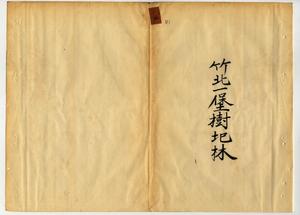 竹北一堡樹圯林